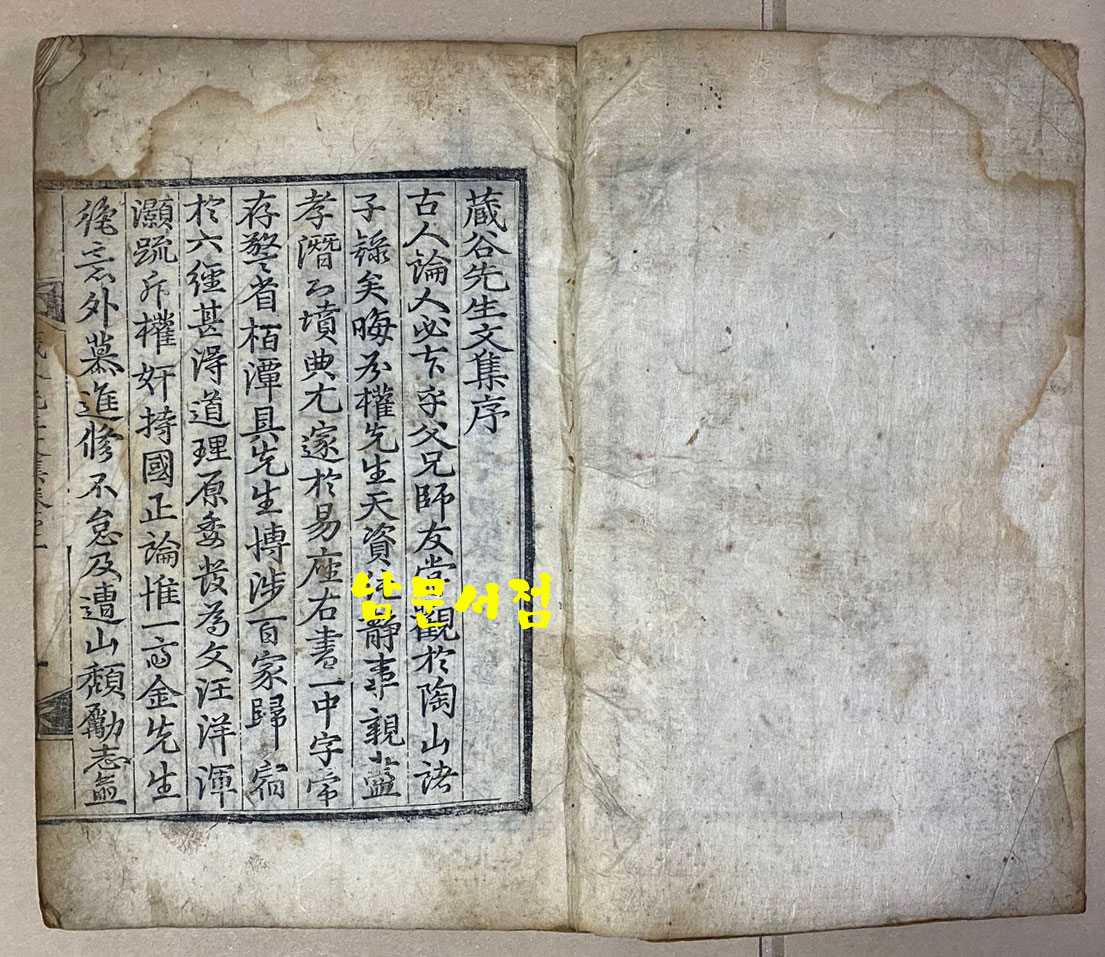 蔵谷先生文集序
古人論人必乎父兄師友嘗觀於陶山諸
子錄矣晦谷權先生天資靜事親盡
孝潛心墳典尤邃於易座右書一中字常
存警省栢潭具先生博涉百家歸宿
於六經甚得道理原委發為文汪洋渾
灝疏斥權奸持國正論惟一齋金先生
絶忘外慕進修不怠及遭山頹勵志益
남문서점